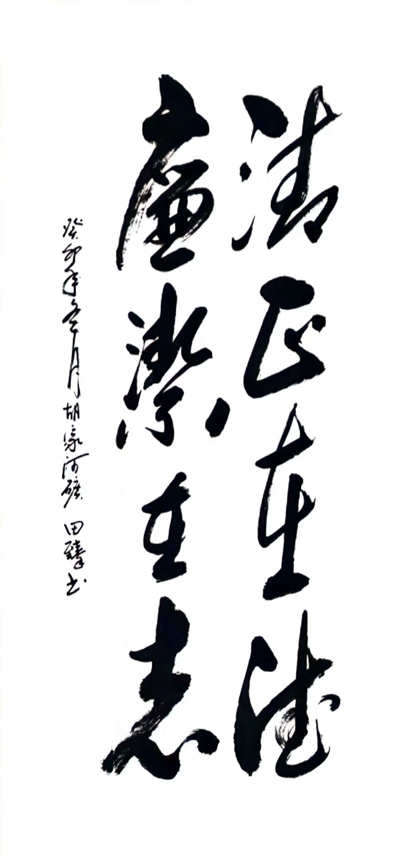 清正在德
廉潔在志
癸卯年冬月胡家河礦 田臻书